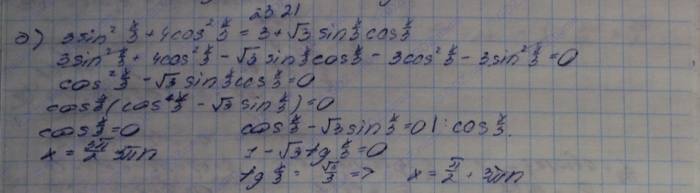 23.21
а) 3sin² x/3 + 4cos² x/3 = 3 + √3 sin x/3 cos x/3
3sin² x/3 + 4cos² x/3 - √3 sin x/3 cos x/3 - 3cos² x/3 - 3sin² x/3 = 0
cos² x/3 - √3 sin x/3 cos x/3 = 0
cos x/3 (cos x/3 - √3 sin x/3) = 0
cos x/3 = 0 cos x/3 - √3 sin x/3 = 0 | : cos x/3.
x = 3π/2 3πn 1 - √3 tg x/3 = 0
tg x/3 = √3/3 => x = π/2 + 3πn